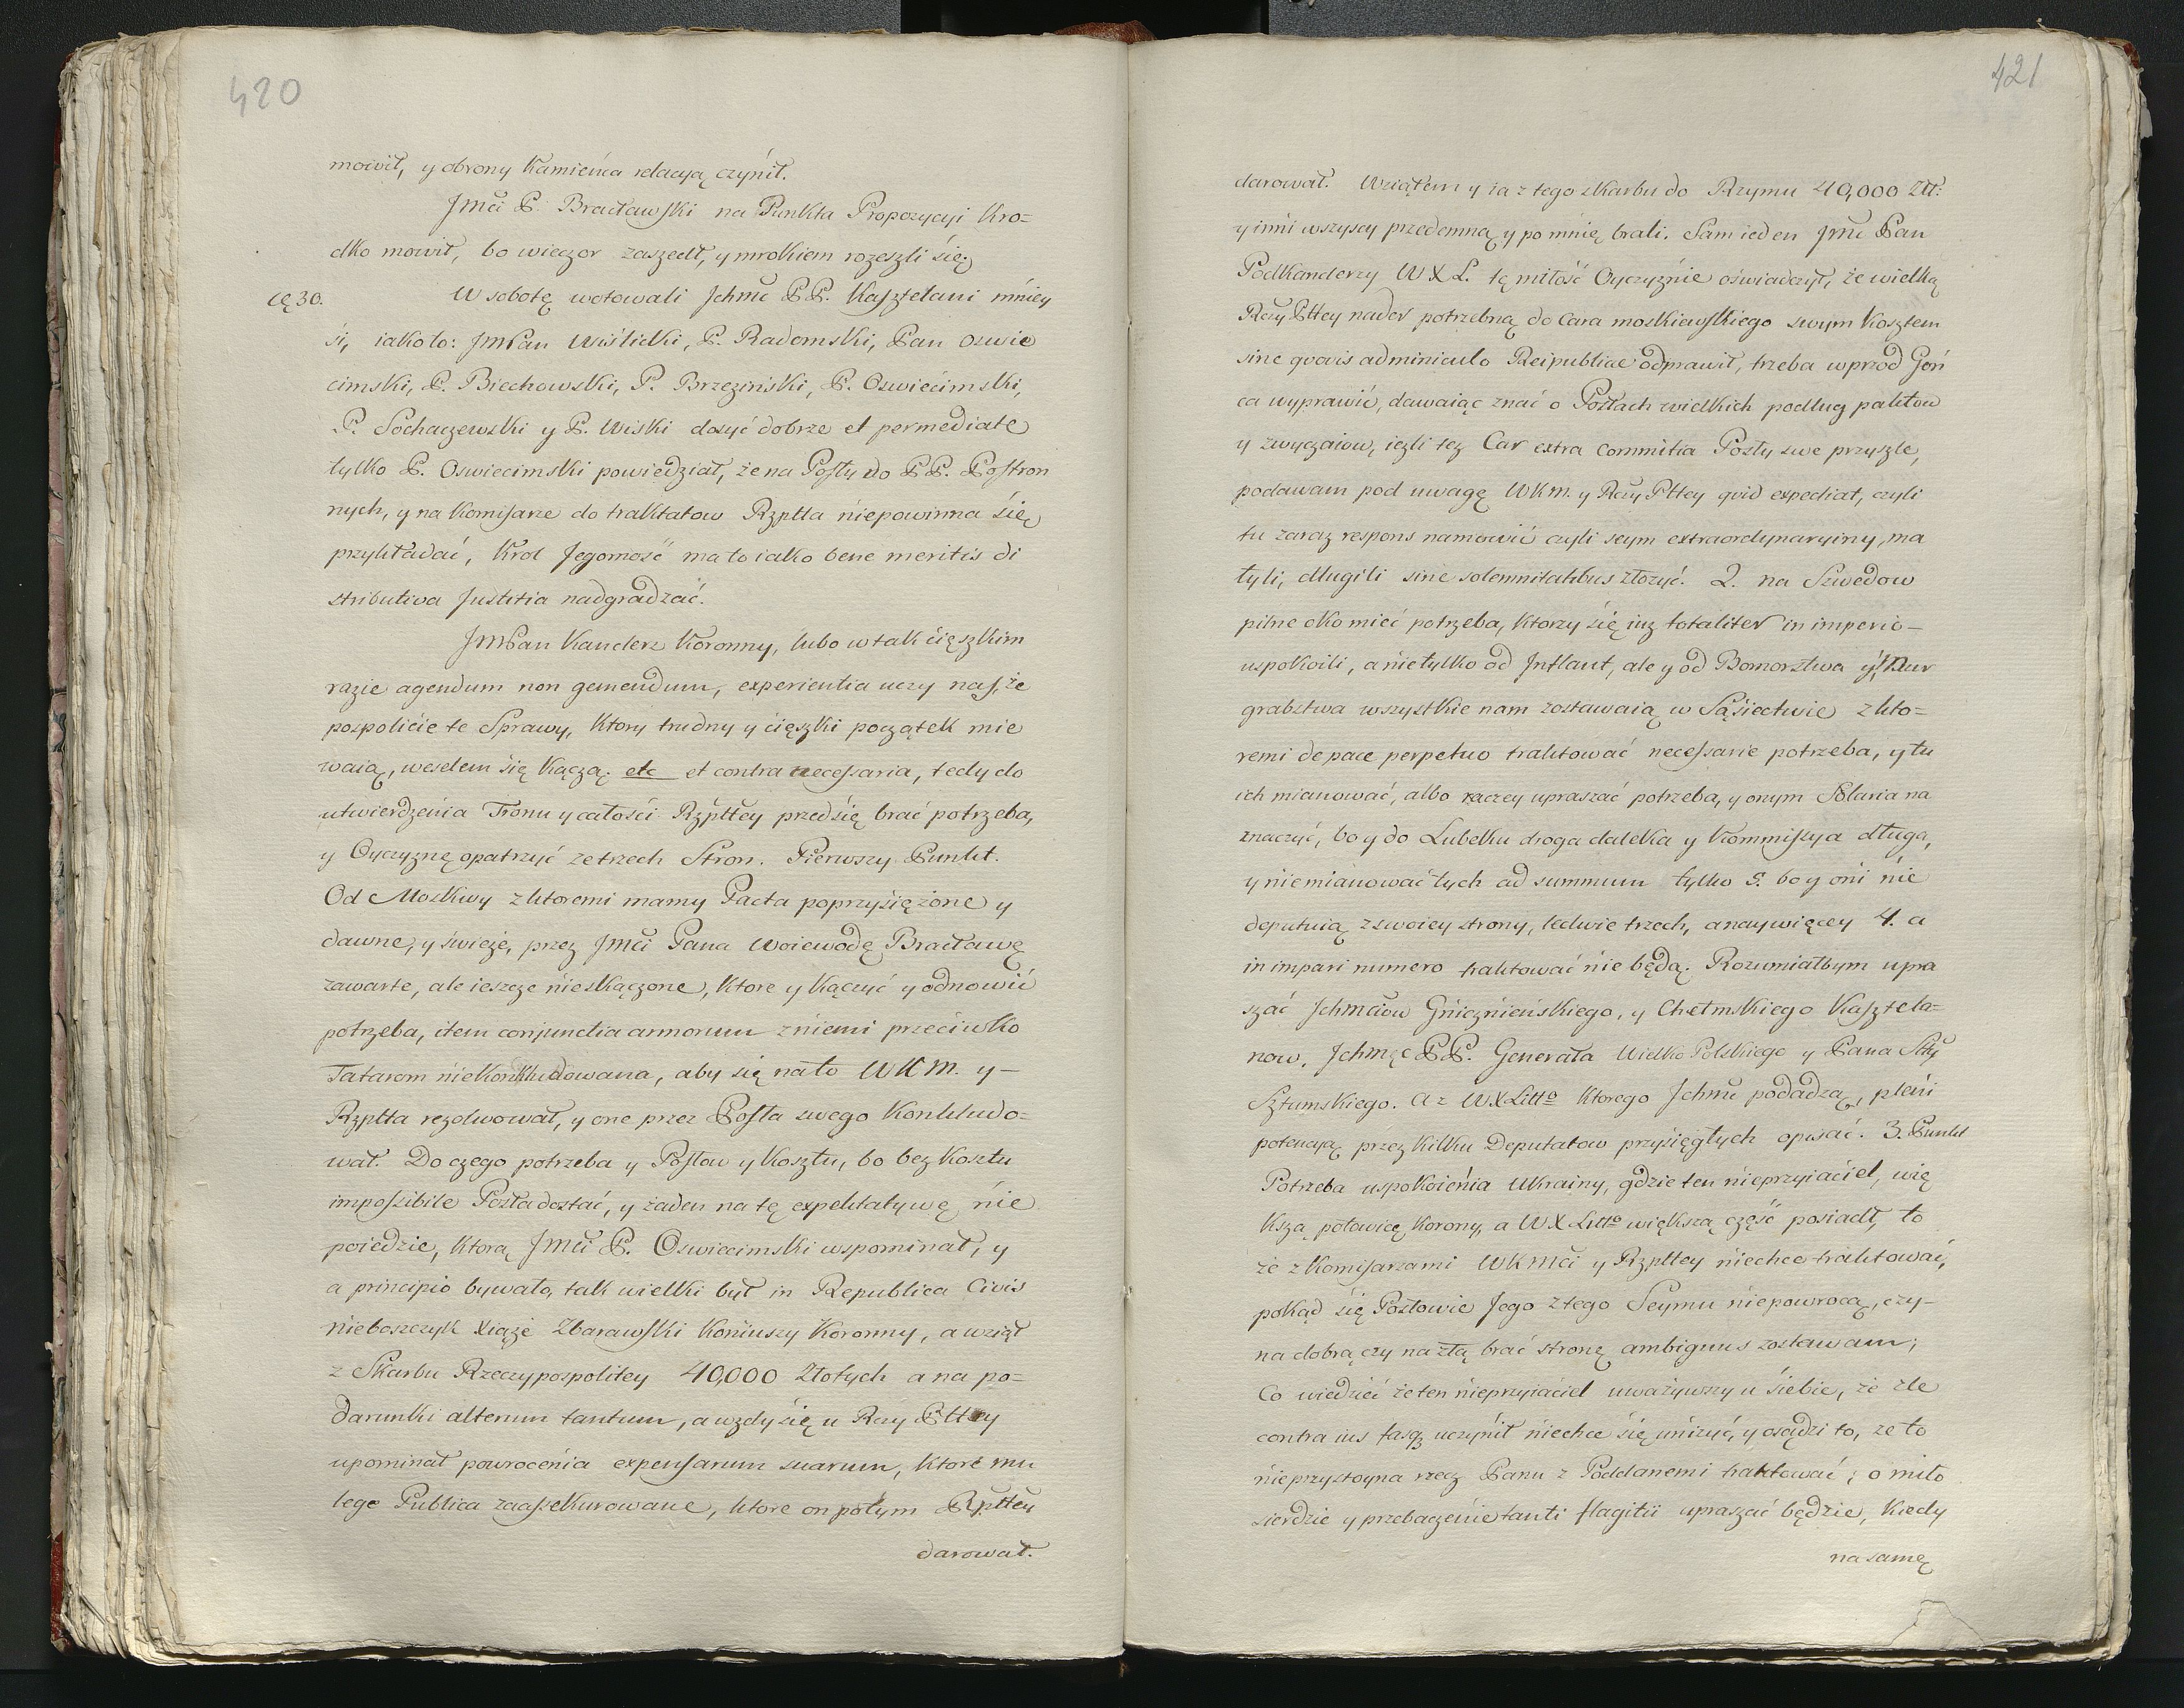 420
mowił, y obrony Kamieńca relacyą czynił.
Jmci P. Bracławski na Punkta Propozycyi Kro=
dko mowił, bo wieczor zaszedł, y mrokiem rozeszli się,
cę 30. W sobotę wotowali Jchmc PP. Kasztelani mniey
si, iako to: JmPan Wiślicki, P. Radomski, Pan Oswie
cimski, P. Biechowski, P. Brzeziński, P. Oswiecimski,
P. Sochaczewski y P. Wiski dosyć dobrze et permediate
tylko P. Oswiecimski powiedział, że na Posły do PP. Postron
nych, y na Komisarze do traktatow Rzptta niepowinna się
przykładać, Krol Jegomość ma to iako bene meritis di
stributiva Justitia nadgradzać.
JmPan Kanclerz Koronny, lubo w tak cięszkim
razie agendum non gemendum, experientia uczy nas, że
pospolicie te Sprawy, Ktory trudny y cięszki początek mie
waią, weselem się Kączą. etc et contra necessaria, tedy do
utwierdzenia Tronu y całości Rzpttey przedsię brać potrzeba,
y Oyczyznę opatrzyć ze trzech Stron. Pierwszy Punkt.
Od Moskwy z ktoremi mamy Pacta poprzysiężone y
dawne, y świeże, przez Jmci Pana Woiewodę Bracławę
zawarte, ale ieszcze nieskączone, Ktore y Kączyć y odnowić
potrzeba, item conjunctia armorum z niemi przeciwko
Tatarom niekonkludowana, aby się na to WKM. y –
Rzptta rezolwował, y one przez Posła swego Konkludo=
wał. Do czego potrzeba y Posłow y Kosztu, bo bez Kosztu
impossibile Posła dostać, y żaden na tę expektatywę nie
poiedzie, Ktorą Jmci P. Oswiecimski wspominał, y
a principio bywało, tak wielki był in Republica Civis
nieboszczyk Xiąże Zbarawski Koniuszy Koronny, a wziął
z Skarbu Rzeczypospolitey 40,000 Złotych a na po=
darunki alterum tantum, a wzdy się u Rzy Pttey
upominał powrocenia expensarum suarum, Ktore mu
lege Publica zaassekurowane, ktore on potym Rpttey
darował.
421
darował. Wziąłem y ia z tego skarbu do Rzymu 40,000 Złł:
y inni wszyscy przedemną y po mnie brali. Sam ieden Jmc Pan
Podkanclerzy W X L. tę miłość Oyczyznie oświadczył, że wielką
Rzy Pttey nader potrzebną do Cara moskiewskiego swym Kosztem
sine qvavis adminiculo Reipublicae odprawił, trzeba wprzod Goń
ca wyprawić, dawaiąc znać o Posłach wielkich podług paktow
y zwyczaiow, iezli tez Car extra Commitia Posły swe przyszle,
podawam pod uwagę WKm. y Rzy Pttey qvid expediat, czyli
tu zaraz respons namowić czyli seym extraordynaryiny, ma
łyli, długili sine solemnitatibus złożyć. 2. na Szwedow
pilne oko mieć potrzeba, Ktorzy się iuz totaliter in imperio –
uspokoili, a nie tylko od Inflant, ale y od Pomorstwa y Mar
grabstwa wszystkie nam zostawaią w Sąsiectwie z kto=
remi de pace perpetuo traktować necessarie potrzeba, y tu
ich mianować, albo raczey upraszać potrzeba, y onym Solaria na
znaczyć, bo y do Lubeku droga daleka y Kommissya długa,
y nie mianować tych ad summum tylko 5. bo y oni nie
deputuią z swoiey strony, ledwie trzech, a naywięcey 4. a
in impari numero traktować nie będą. Rozumiałbym upra
szać Jchmciow Gnieźnieńskiego, y Chełmskiego Kasztela=
now, Jchmcę PP. Generała Wielko Polskiego y Pana Stty
Sztumskiego. a z W X Litto Ktorego Jchmc podadzą, pleni
potencyą przez Kilku Deputatow przysięgłych opisać. 3. Punkt
Potrzeba uspokoienia Ukrainy, gdzie ten nieprzyiaciel, wię
Kszą połowicę Korony, a W X Litto większą część posiadł, to
że z Komisarzami WKMci y Rzpttey niechce traktować,
pokąd się Posłowie Jego z tego Seymu niepowrocą, czy –
na dobrą czy na złą brać stronę ambiguus zostawam;
Co wiedzieć że ten nieprzyiaciel uważywszy u siebie, że źle
contra ius fasq uczynił niechce się uniżyć, y osądzi to, ze to
nieprzystoyna rzecz Panu z Poddanemi traktować; o miło
sierdzie y przebaczenie tanti flagitii upraszać będzie, Kiedy
na samę